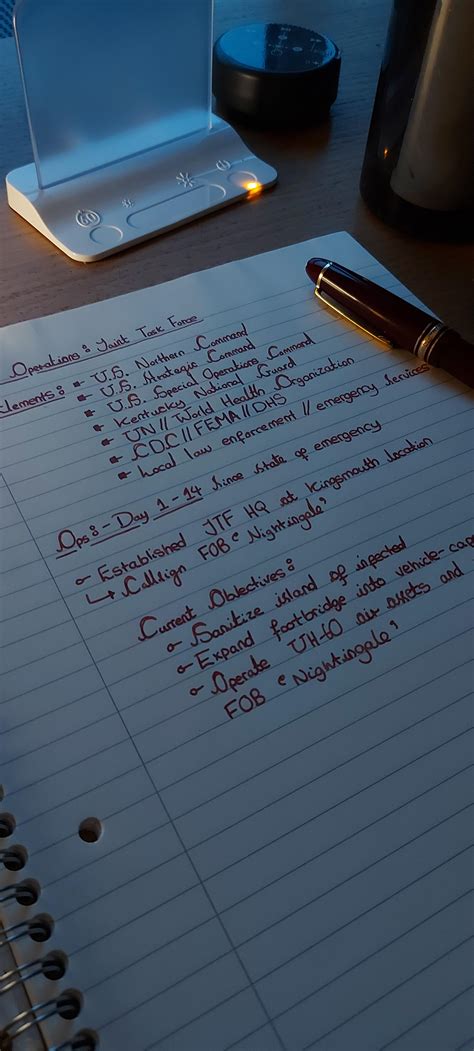 Operations: Joint Task Force
Elements: - U.S. Northern Command
- U.S. Strategic Command
- U.S. Special Operations Command
- Kentucky National Guard
- UN // World Health Organization
- CDC // FEMA // DHS
- Local law enforcement // emergency services
Ops:- Day 1-14 since state of emergency
- Established JTF HQ at Kingsmouth location
↳ Callsign FOB 'Nightingale'
Current Objectives:
- Sanitize island of infected
- Expand footbridge into vehicle-cap
- Operate UH-60 air assets and
FOB 'Nightingale'